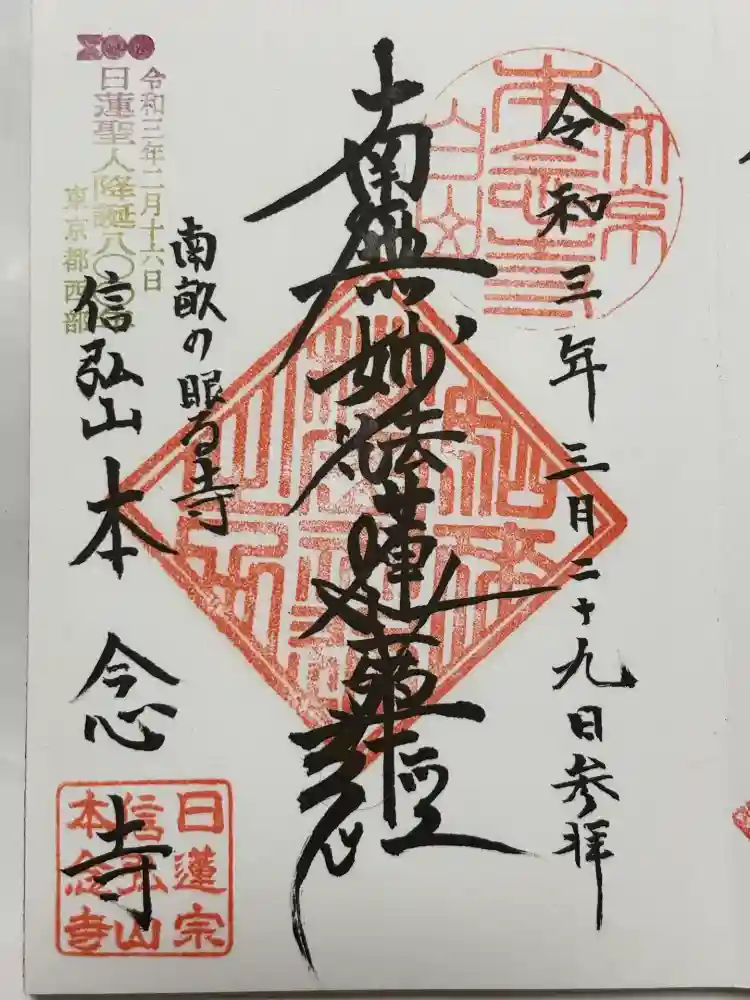 令和三年三月二十九日参拝
南無妙法蓮華経
南畝の眠る寺
信弘山本念寺
令和三年二月十六日
日蓮聖人降誕八〇〇年
東京都西部
文京
本念寺
白山
日蓮宗
信弘山
本念寺